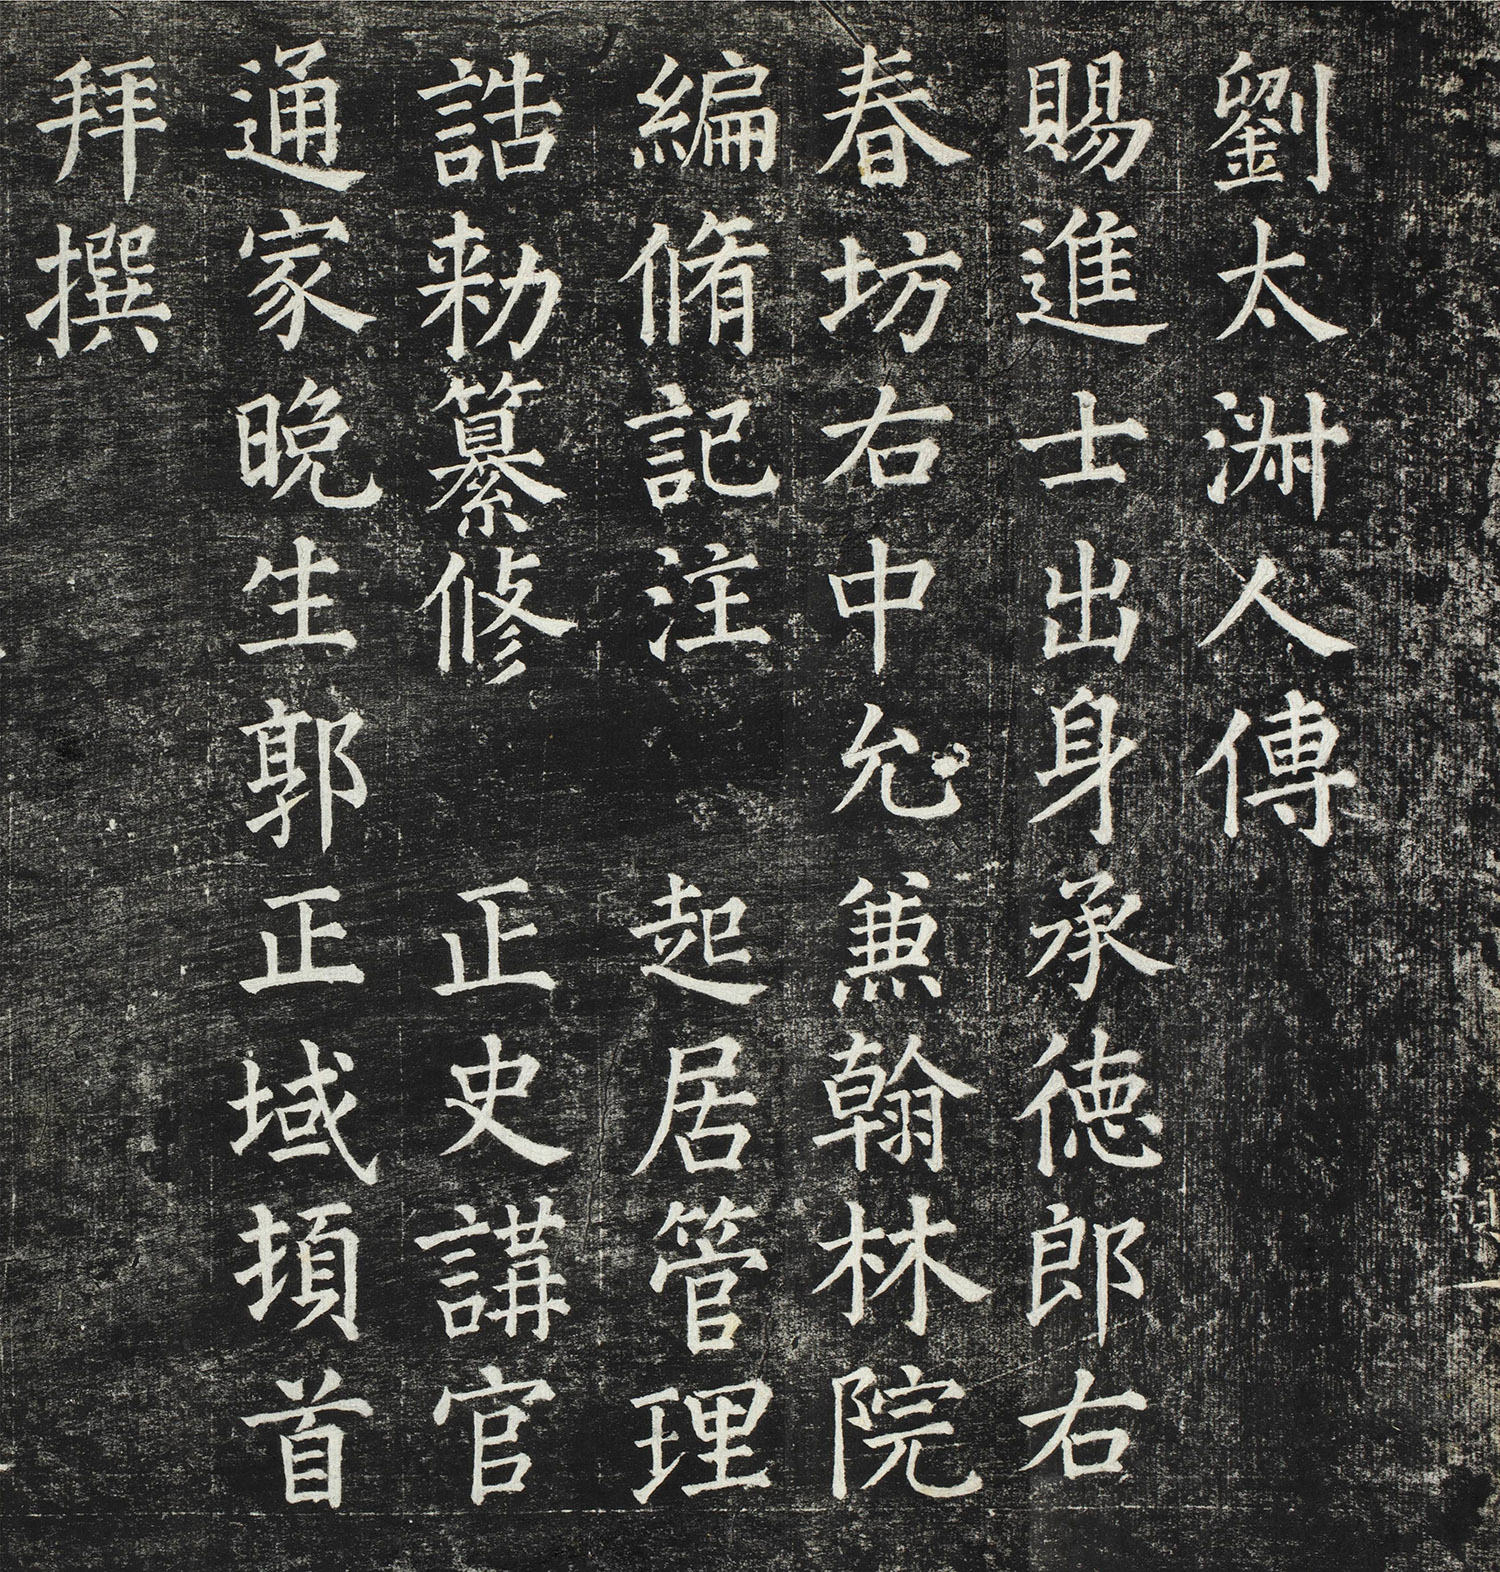 劉太淑人傳
賜進士出身承徳郎右
春坊右中允兼翰林院
編脩記注　起居管理
誥勅纂修　正史講官
通家晚生郭正域頓首
拜撰